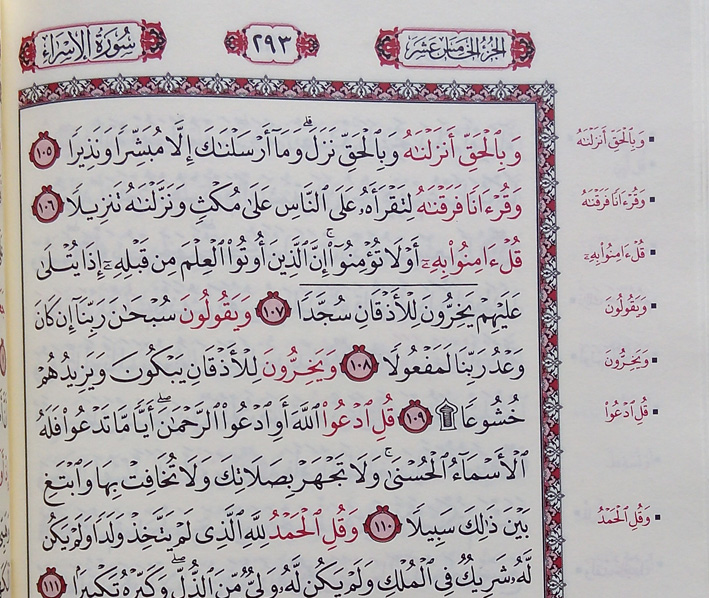 الجزء الخامس عشر
٢٩٣
سورة الإسراء
وَبِٱلۡحَقِّ أَنزَلۡنَٰهُ وَبِٱلۡحَقِّ نَزَلَۗ وَمَآ أَرۡسَلۡنَٰكَ إِلَّا مُبَشِّرٗا وَنَذِيرٗا ١٠٥
وَقُرۡءَانٗا فَرَقۡنَٰهُ لِتَقۡرَأَهُۥ عَلَى ٱلنَّاسِ عَلَىٰ مُكۡثٖ وَنَزَّلۡنَٰهُ تَنزِيلٗا ١٠٦
قُلۡ ءَامِنُواْ بِهِۦٓ أَوۡ لَا تُؤۡمِنُوٓاْۚ إِنَّ ٱلَّذِينَ أُوتُواْ ٱلۡعِلۡمَ مِن قَبۡلِهِۦٓ إِذَا يُتۡلَىٰ
عَلَيۡهِمۡ يَخِرُّونَ لِلۡأَذۡقَانِ سُجَّدٗاۤ ١٠٧ وَيَقُولُونَ سُبۡحَٰنَ رَبِّنَآ إِن كَانَ
وَعۡدُ رَبِّنَا لَمَفۡعُولٗا ١٠٨ وَيَخِرُّونَ لِلۡأَذۡقَانِ يَبۡكُونَ وَيَزِيدُهُمۡ
خُشُوعٗا ۩ ١٠٩ قُلِ ٱدۡعُواْ ٱللَّهَ أَوِ ٱدۡعُواْ ٱلرَّحۡمَٰنَۖ أَيّٗا مَّا تَدۡعُواْ فَلَهُ
ٱلۡأَسۡمَآءُ ٱلۡحُسۡنَىٰۚ وَلَا تَجۡهَرۡ بِصَلَاتِكَ وَلَا تُخَافِتۡ بِهَا وَٱبۡتَغِ
بَيۡنَ ذَٰلِكَ سَبِيلٗا ١١٠ وَقُلِ ٱلۡحَمۡدُ لِلَّهِ ٱلَّذِي لَمۡ يَتَّخِذۡ وَلَدٗا وَلَمۡ يَكُن
لَّهُۥ شَرِيكٞ فِي ٱلۡمُلۡكِ وَلَمۡ يَكُن لَّهُۥ وَلِيّٞ مِّنَ ٱلذُّلِّۖ وَكَبِّرۡهُ تَكۡبِيرَۢا ١١١
وَبِٱلۡحَقِّ أَنزَلۡنَٰهُ
وَقُرۡءَانٗا فَرَقۡنَٰهُ
قُلۡ ءَامِنُواْ بِهِۦٓ
وَيَقُولُونَ
وَيَخِرُّونَ
قُلِ ٱدۡعُواْ
وَقُلِ ٱلۡحَمۡدُ